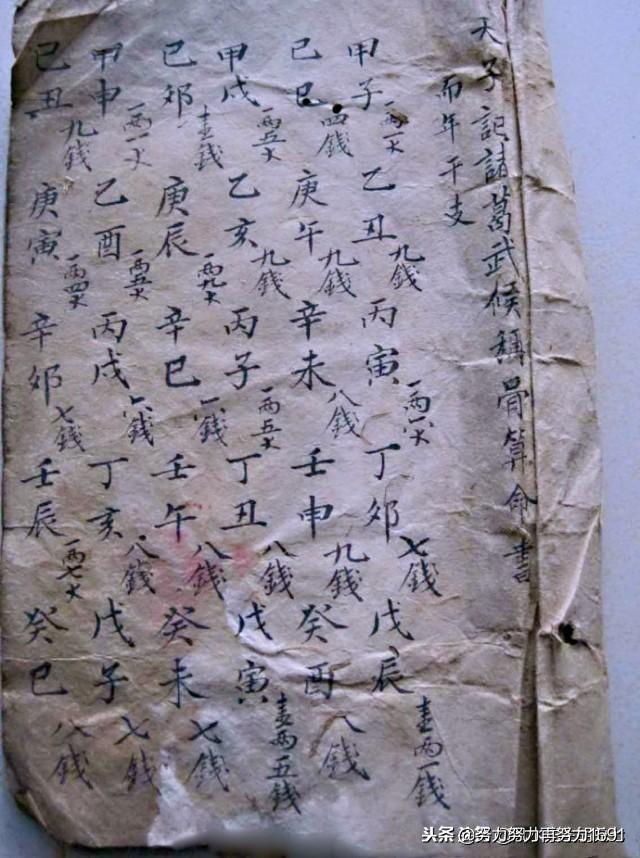 天子記諸葛武候稱骨算命書
而年干支
甲子一两一大乙丑九錢丙寅一两八大丁卯七錢戊辰壹两一錢
己巳四錢庚午九錢辛未八錢壬申九錢癸酉八錢
甲戌一两五大乙亥九錢丙子一两五大丁丑八錢戊寅壹两五錢
己卯壹錢庚辰一两九大辛巳錢壬午八錢癸未七錢
甲申一两一大乙酉一两五大丙戌六錢丁亥八錢戊子七錢
己丑九錢庚寅一两四大辛卯七錢壬辰一两七大癸巳八錢
头条 @努力努力再努力